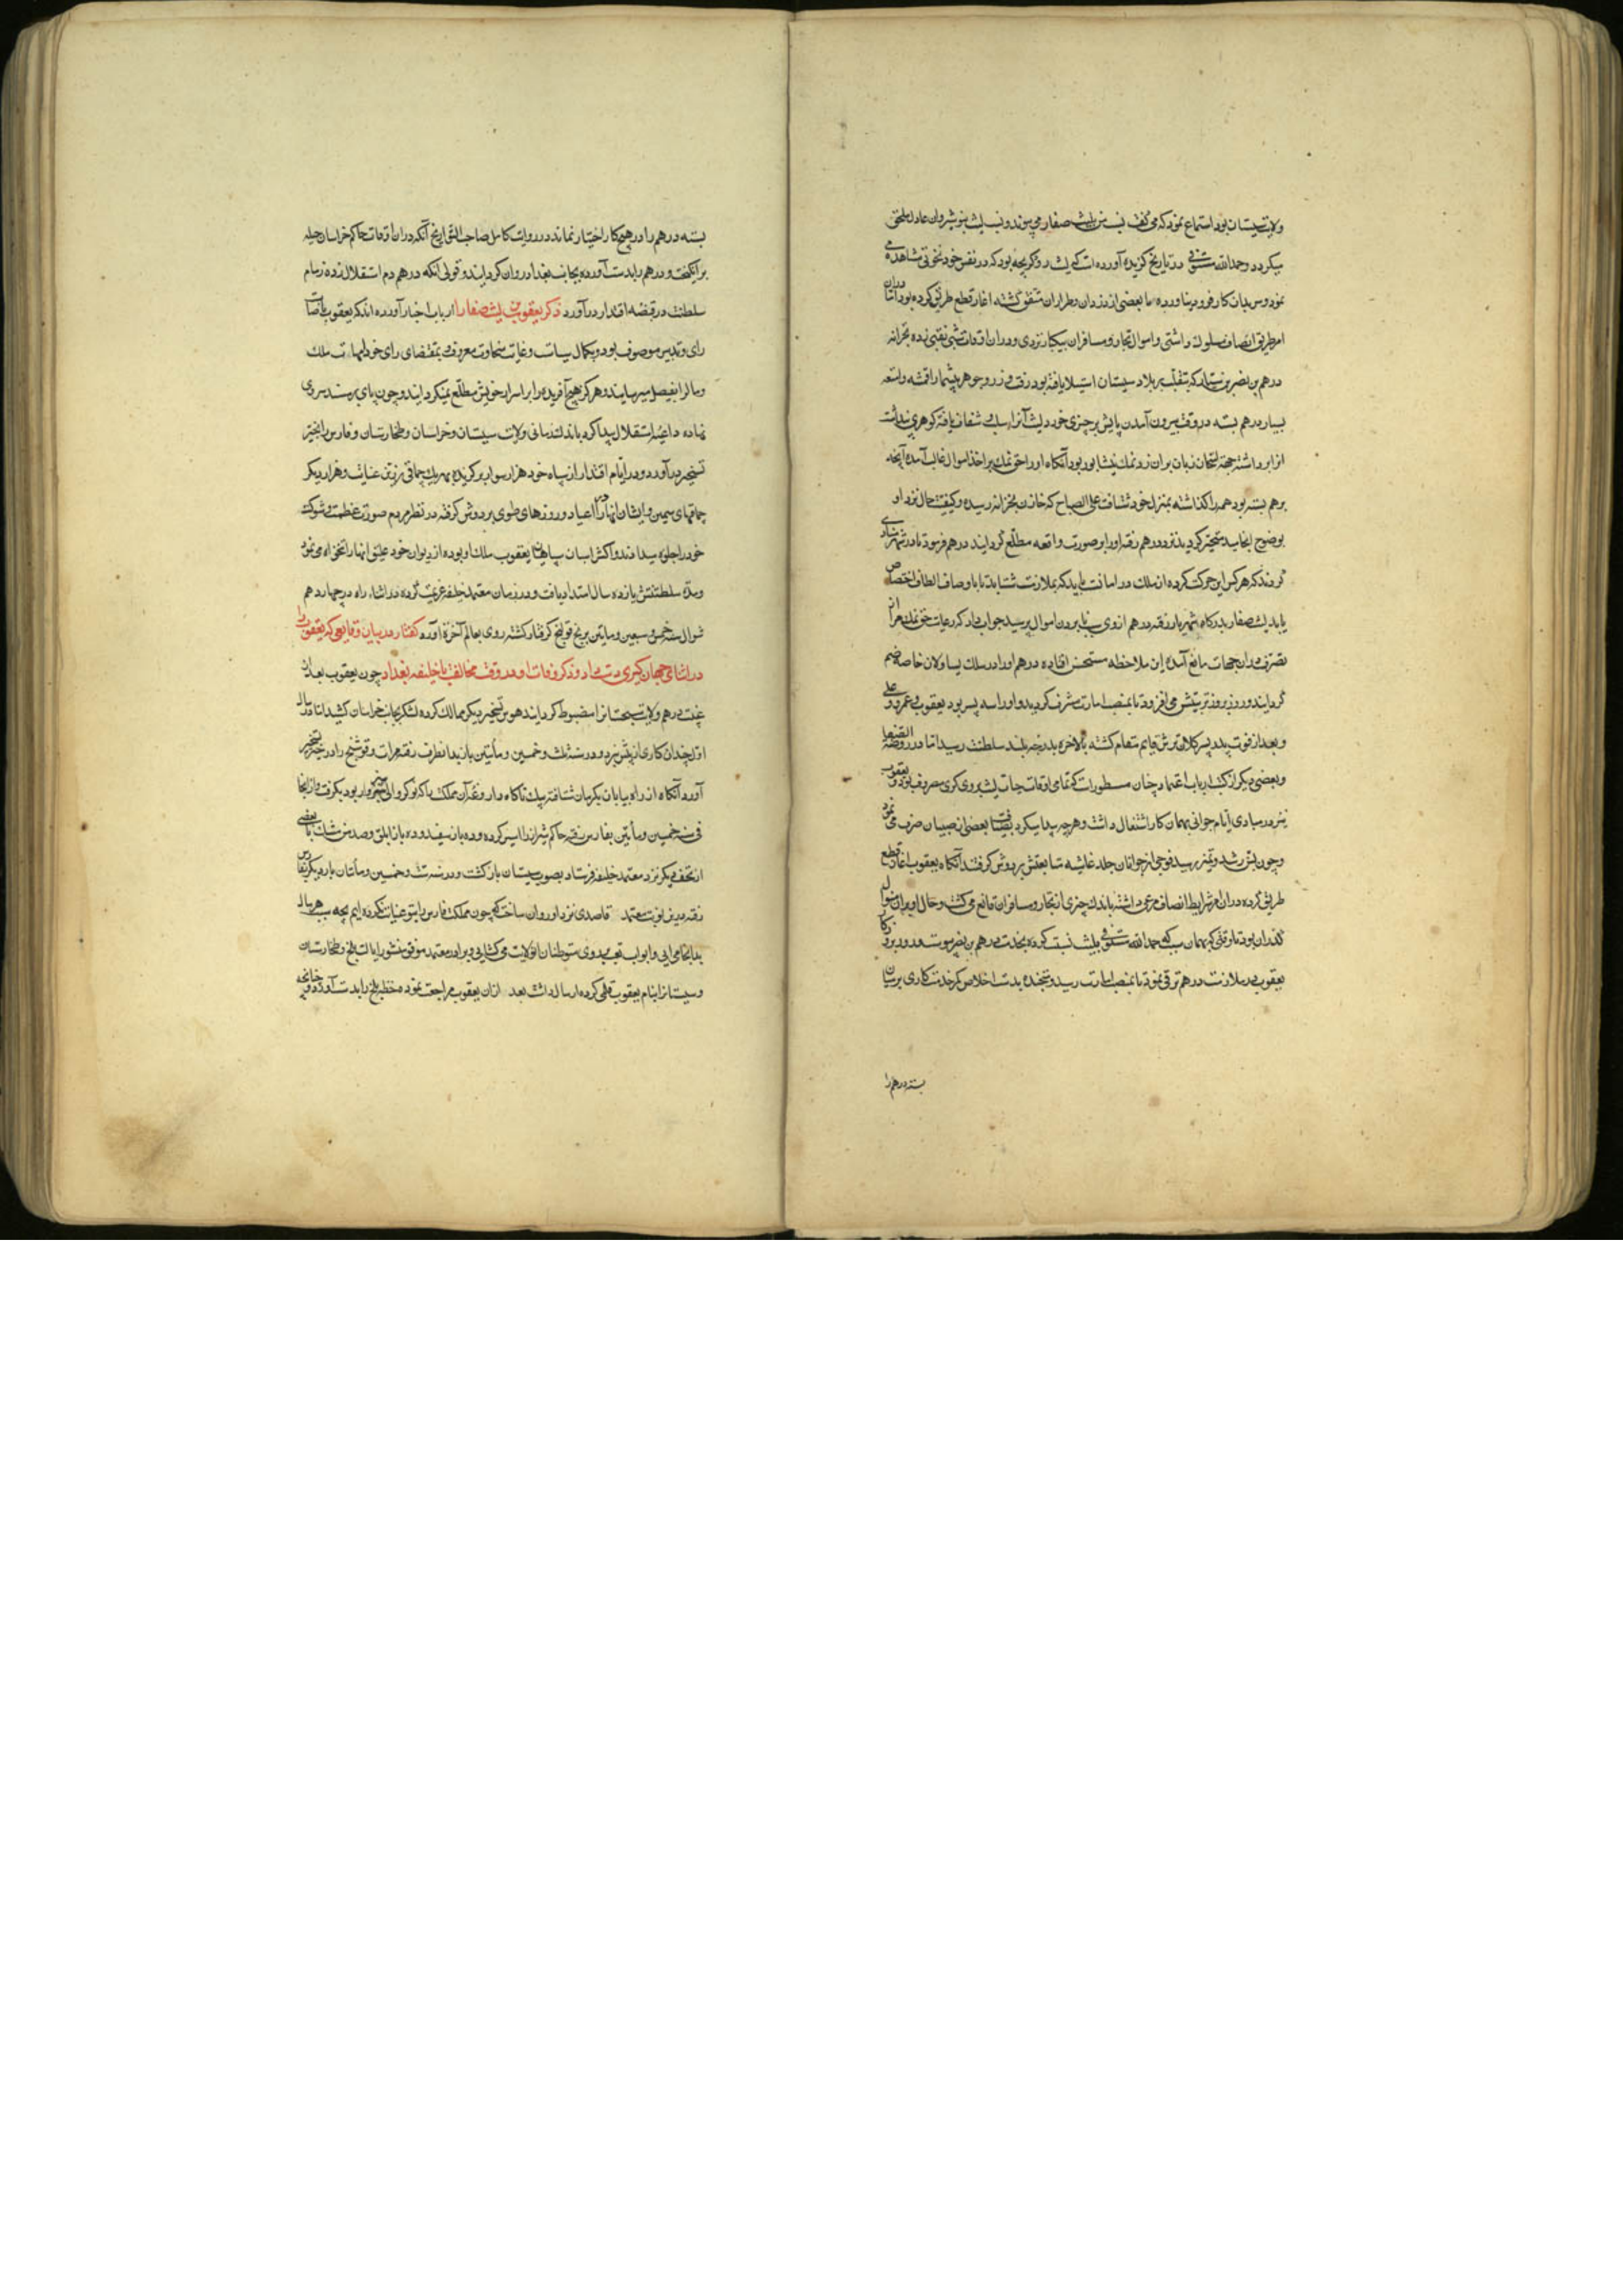 ولایت سیستان بود استماع نمود که می گفت نسب من بلیث صفار می پیوندد و نسب لیث بنوشیروان عادل ملحق
میگردد و حمدالله مستوفی در تاریخ گزیده آورده است که لیث رویگر بچه بود که در نفس خود نخوتی مشاهده می
نمود و سر بدان کار فرو نمی آورد اما بعضی از دزدان و طراران متفق گشته اغاز قطع طریق کرده بود و در آن اثنا
امر طریق انصاف سلوک داشتی و اموال تجار و مسافران بیکبار نبردی و در ان اوقات شبی نقبی زده بخزانه
درهم بن نصر بن که بتغلب بر بلاد سیستان استیلا یافته بود رفت و زر و جوهر بیشمار اقمشه و امتعه
بسیار درهم بسته در وقت بیرون آمدن پایش بر چیزی خورد لیث آنرا شفاف یافته گوهری پنداشت
انرا برداشته جهة امتحان زبان بران زد نمک نیشابور بود آنگاه او را حق نمک بر اخذ اموال غالب آمده آنچه
برهم بسته بود همه را گذاشته بمنزل خود شتافت علی الصباح که خازن بخزانه رسیده و کیفیت حال نزد او
بوضوح انجامید متحیر گردیده نزد درهم رفته او را بر صورت واقعه مطلع گردانید درهم فرمود تا در شهر منادی
کردند که هر کس این حرکت کرده از ملک در امانت باید که بملازمت شتابد تا باوصاف الطاف اختصاص
یابد لیث صفار بدرگاه شهریار رفته درهم از وی سبب نابرون اموال پرسید جواب داد که رعایت حق نمک مرا از
تصرف دران جهات مانع آمد این ملاحظه مستحسن افتاده درهم او را در سلک یساولان خاصه ضم
گردانید و روز بروز تربیتش می افزود تا بمنصب امارت مشرف گردید و او را سه پسر بود یعقوب و عمرو و علی
و بعد از فوت پدر پسر کلان ترش قایم مقام گشته بالاخره بدرجه بلند سلطنت رسید اما در روضة الصفا
و بعضی دیگر از کتب ارباب اعتماد چنان مسطورست که تمامی اوقات حیات لیث بروی گری مصروف بود و یعقوب
نیز در مبادی ایام جوانی بهمان کار اشتغال داشت و هر چه پیدا میکرد بعضی از صبیان صرف می نمود
و چون بسن رشد و تمیز رسید فوجی از جوانان جلد غاشیه متابعتش بر دوش گرفتند آنگاه یعقوب اغاز قطع
طریق کرده دران امر شرایط انصاف مرعی داشته باندک چیزی از تجار و مسافران قانع می گشت و حال او بران منوال
گذران بود تا وقتی که بهمان سبب که حمدالله مستوفی بلیث نسبت کرده بخدمت درهم بن نصر پیوست و در
یعقوب در ملازمت درهم ترقی نمود تا بمنصب امارت رسید و بتجنده بدست اخلاص کمر خدمتکاری بر میان
بسته درهم را
بسته درهم را در هیچ کار اختیار نماند و در روایت کامل صاحب التواریخ آنکه دران اوقات حاکم خراسان حیله
برانگیخت و درهم را بدست آورده بجانب بغداد روان گردانید و قولی انکه درهم دم استقلال زده زمام
سلطنت در قبضه اقتدار در آورد ذکر یعقوب بن لیث صفار ارباب اخبار آورده اند که یعقوب باصابت
رای و تدبیر موصوف بود و بکمال سیاست و غایت سخاوت معروف بمقتضای رای خود مهمات ملک
و مال را بفیصل میرسانید و هرگز هیچ آفریده را بر اسرار خویش مطلع نمیگردانید و چون پای بر مسند سروری
نهاد داعیه استقلال پیدا کرد باندک زمانی ولایت سیستان و خراسان و طخارستان و فارس را بحیز
تسخیر در آورد و در ایام اقتدار از سپاه خود هزار سوار برگزیده بهر یک چماقی زرین عنایت و هزار دیگر
چماقهای سیمین و ایشان انها را در اعیاد و روزهای طوی بر دوش گرفته در نظر مردم صورت عظمت و شوکت
خود را جلوه میدادند و اکثر اسبان سپاهیان یعقوب ملک او بوده از دیوان خود علیق انها را تنخواه می نمود
و مدة سلطنتش یازده سال امتداد یافت و در زمان معتمد خلیفه عزیمت کرده در اثناء راه در چهاردهم
شوال سنه خمس و سبعین و مایتین برنج قولنج گرفتار گشته روی بعالم آخرة آورد گفتار در بیان وقایعی که یعقوب را
در اثنای جهان گیری دست داد و ذکر وفات او در وقت مخالفت با خلیفه بغداد چون یعقوب بعد از
غیبت درهم ولایت سجستان را مضبوط گردانید هوس تسخیر دیگر ممالک کرده لشکر بجانب خراسان کشید اما در سال
اول چندان کاری از پیش نبرد و در سنه ثلث و خمسین و مأتین باز بدانطرف رفته هرات و فوشنج را در حیز تسخیر
آورد آنگاه از راه بیابان بکرمان شتافته بیک ناگاه داروغه آن مملکت را که نوکر والی شیراز بود بگرفت و از انجا
فی سنه خمسین و مأتین بفارس رفته حاکم شیراز را اسیر کرده و ده باز سفید و ده باز ابلق و صد من مشک با بعضی
از تحف دیگر نزد معتمد خلیفه فرستاد بصوب سیستان باز گشت و در سنه ست و خمسین و مأتان بار دیگر بفارس
رفته درین نوبت معتمد قاصدی نزد او روان ساخت که چون مملکت فارس را بتو عنایت نکرده ایم بچه سبب هر سال
بدانجا می آیی و ابواب تعب بروی متوطنان آنولایت می گشایی و برادر معتمد موفق منشور ایالت بلخ و طخارستان
و سیستان را بنام یعقوب قلمی کرده ارسال داشت بعد ازان یعقوب مراجعت نموده خطه بلخ را بدست آورد و چنانچه